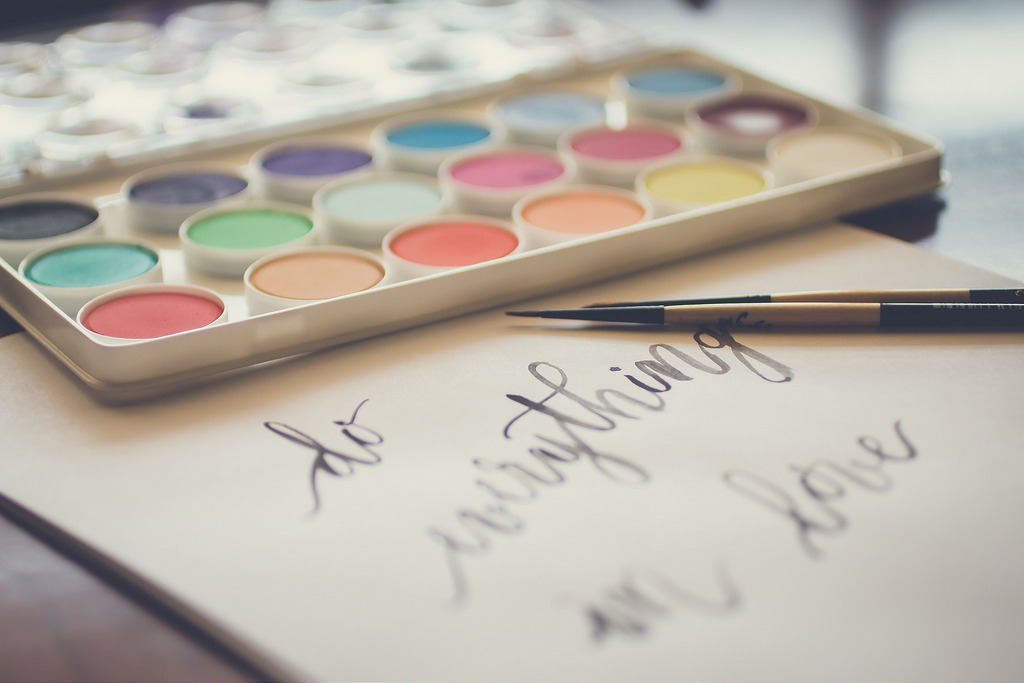 do
everything
in love